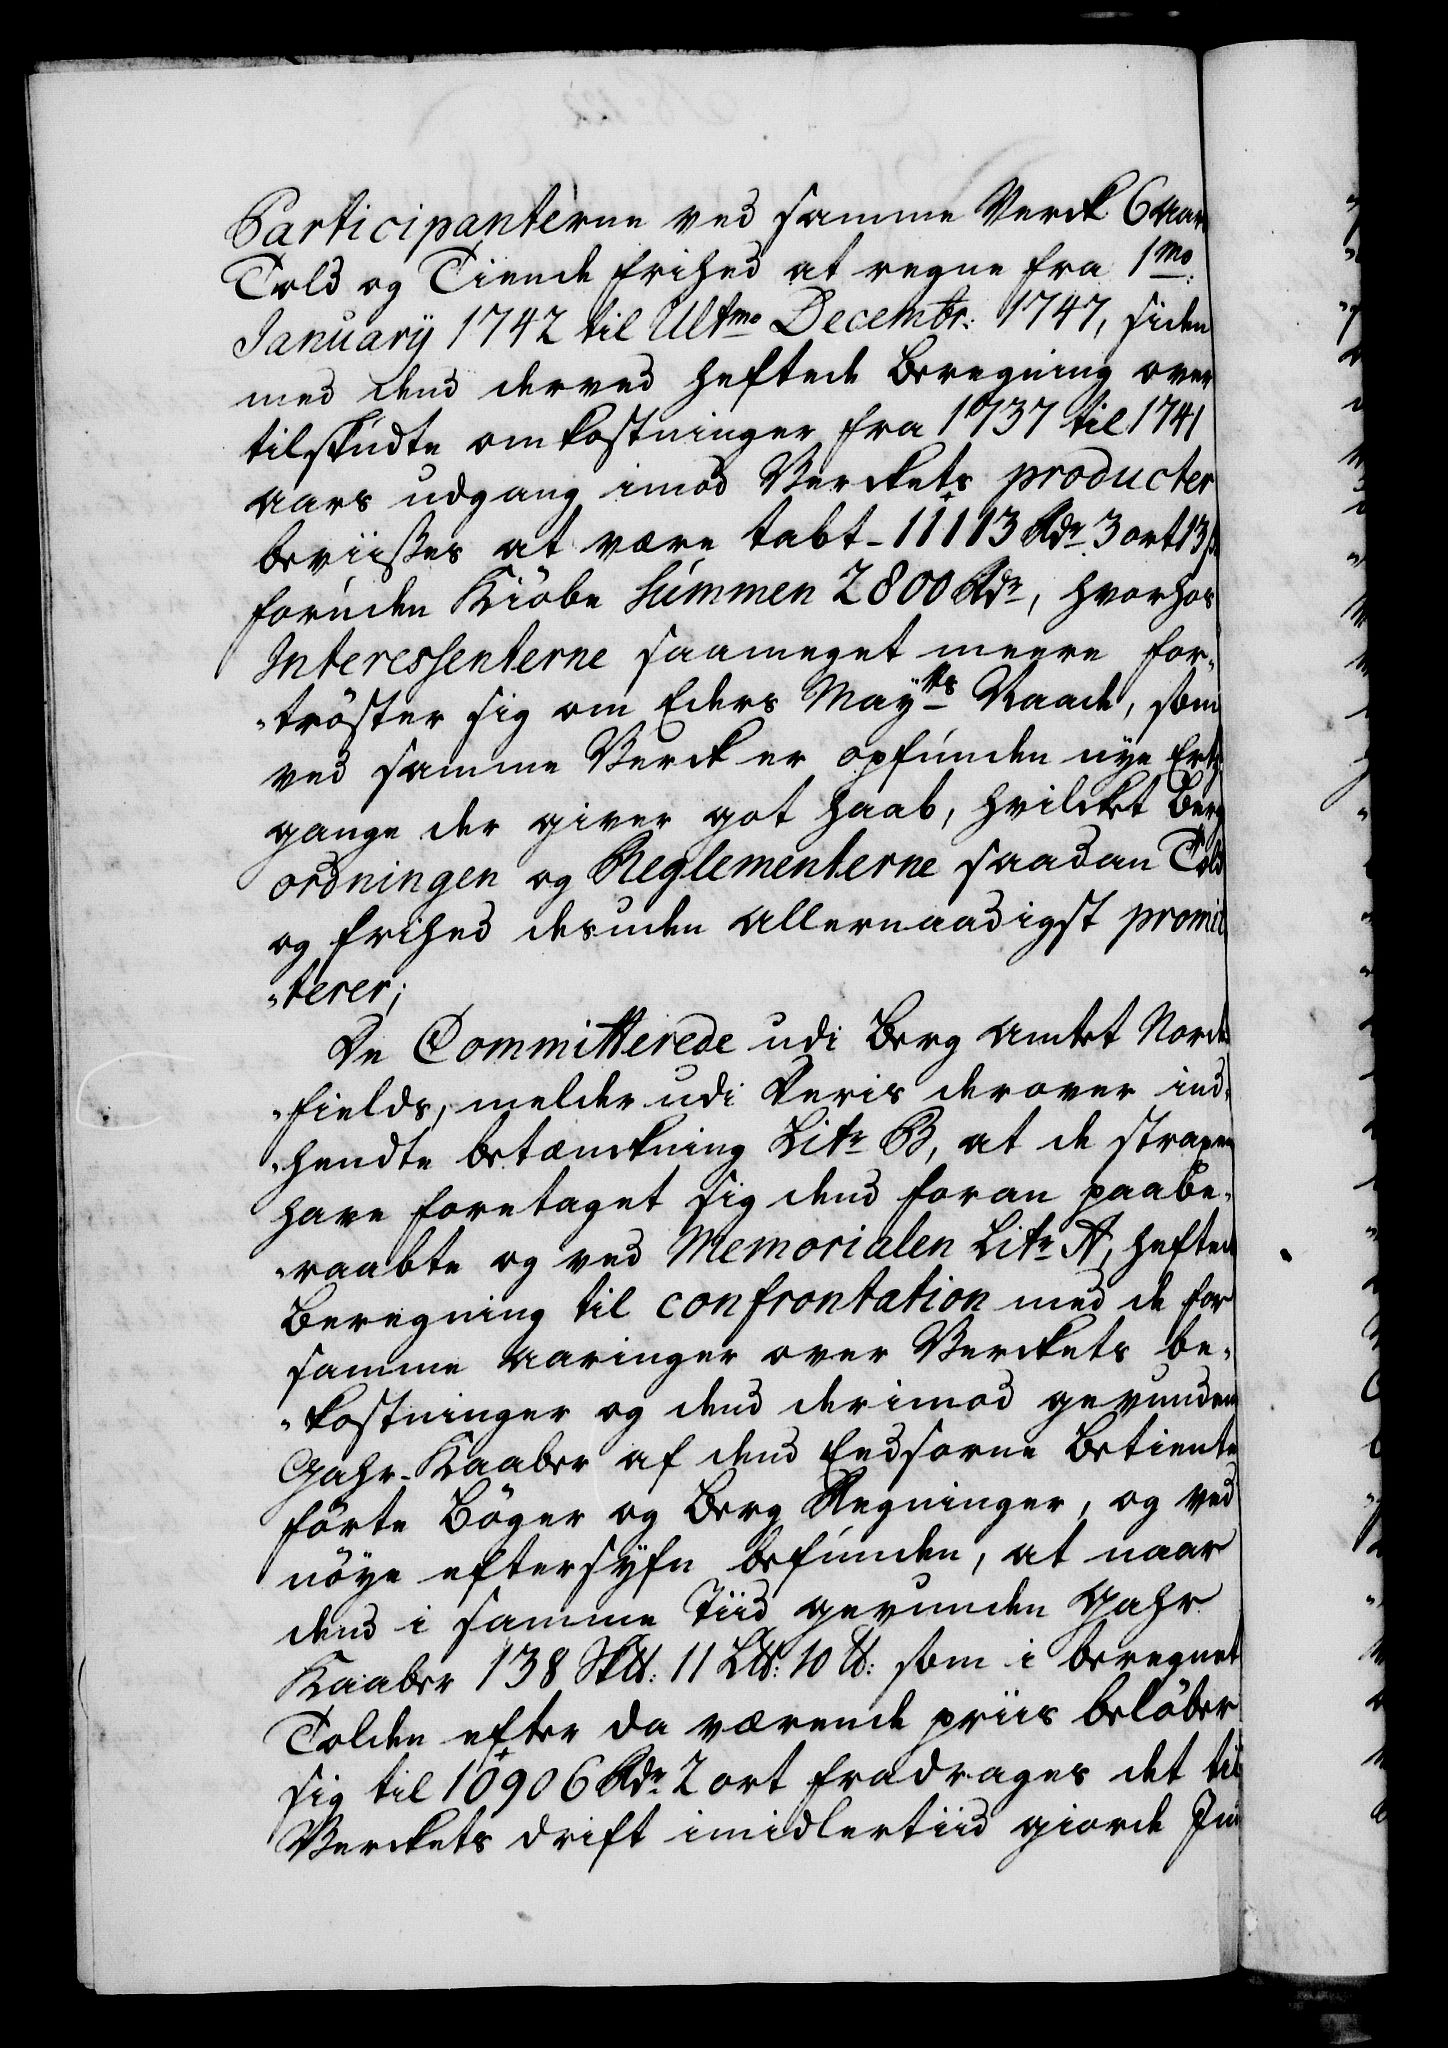 Participanterne ved samme Verck 6 Aars
Told og Tiende frihed at regne fra 1mo:
Januarij 1742 til Ultmo Decembr: 1747, siden
med dend derved heftede Beregning over
tilskudte omkostninger fra 1737 til 1741
aars udgang imod Verckets producter
beviises at være tabt - 11113 Rdr 3 ort 13 s
foruden Kiöbe Summen 2800 Rdr, hvorhos
Interessenterne saameget meere for-
-tröster sig om Eders Maytts Naade, som
ved samme Verck er opfunden nye Ertz
gange der giver got haab, hvilcket Berg
ordningen og Reglementerne saadan Told
og frihed desuden allernaadigst promit
-terer;
De Committerede udi Berg Amtet Norden
-fields, melder udi Deris derover ind-
-hendte betænckning Litr B, at de straxen
have foretaget sig dend foran paabe-
-raabte og ved Memorialen Litr A, heftede
Beregning til confrontation med de for
samme Aaringer over Verckets be-
-kostninger og dend derimod gevundene
Gahr-Kaaber af dend Eedsorne Betiente
förte Böger og Berg Regninger, og ved
nöye eftersyfn befunden, at naar
dend i samme Tiid gevunden Gahr
Kaaber 138 Sk℔: 11 L℔: 10 ℔: som i beregnet
Tolden efter da værende priis belöber
sig til 10906 Rdr 2 ort fradrages det til
Verckets drift imidlertiid giorde